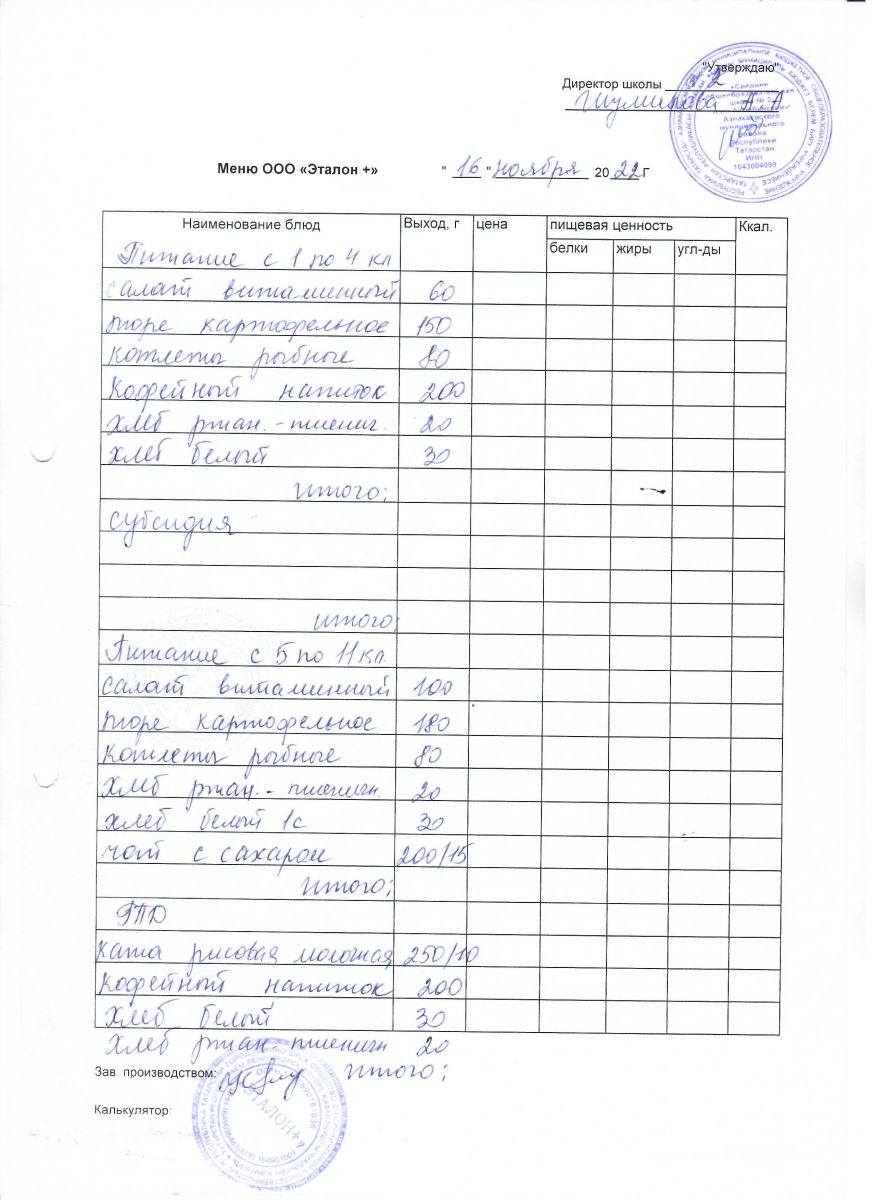 "Утверждаю"
Директор школы № 2
Шумилова А.А
«Средняя
общеобразовательная
школа № 2
Азнакаевского
муниципального
района
Республики
Татарстан
ИНН
1643004099
Меню ООО «Эталон +» " 16 " ноября 2022 г
Наименование блюд Выход, г цена пищевая ценность Ккал.
белки жиры угл-ды
Питание с 1 по 4 кл
салат витаминный 60
пюре картофельное 150
котлеты рыбные 80
Кофейный напиток 200
хлеб ржан.-пшениг. 20
хлеб белый 30
итого:
субсидия
итого:
Питание с 5 по 11 кл.
салат витаминный 100
пюре картофельное 180
котлеты рыбные 80
хлеб ржан.- пшенигн. 20
хлеб белый 1с 30
чай с сахаром 200/15
итого:
ГПД
каша рисовая молочная 250/10
Кофейный напиток 200
хлеб белый 30
хлеб ржан. пшенигн 20
Зав. производством: итого:
«ЭТАЛОН+»
Калькулятор: